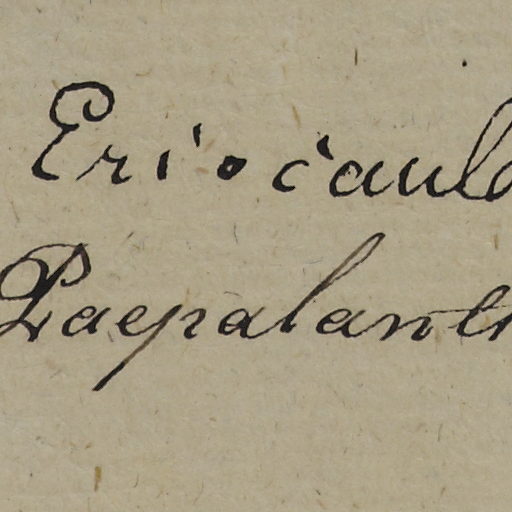 Eriocaul
Paepalant